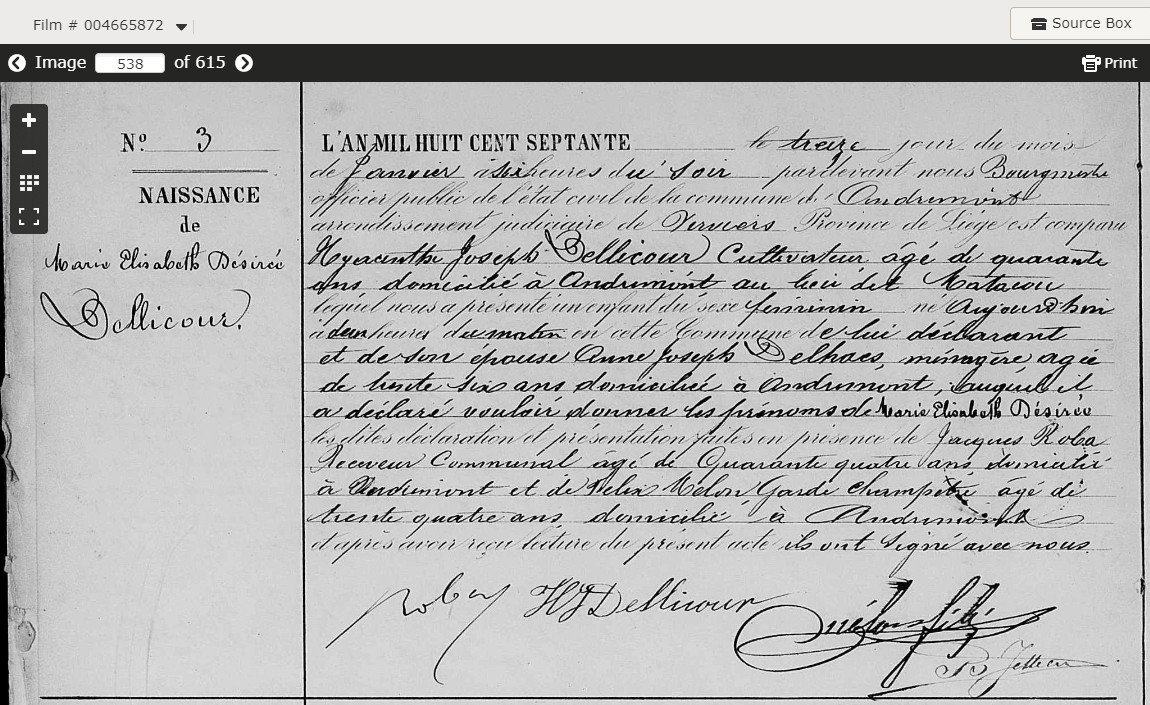 Film # 004665872
Source Box
Image 538 of 615
Print
Nº 3
NAISSANCE
de
Marie Elisabeth Désirée
Dellicour.
L'AN MIL HUIT CENT SEPTANTE le treize jour du mois
de Janvier à six heures du soir pardevant nous Bourgmestre
officier public de l'état civil de la commune d'Andrimont
arrondissement judiciaire de Verviers Province de Liége est comparu
Hyacinthe Joseph Dellicour Cultivateur âgé de quarante
ans domicilié à Andrimont au lieu dit
lequel nous a présenté un enfant du sexe feminin né Aujourd'hui
à deux heures du matin en cette Commune de lui déclarant
et de son épouse Anne Joseph Delhaes, ménagère, agée
de trente six ans domiciliée à Andrimont, auquel il
a déclaré vouloir donner les prénoms de Marie Elisabeth Désirée
les dites déclaration et présentation faites en présence de Jacques Roba
Receveur Communal âgé de Quarante quatre ans domicilié
à Andrimont et de Felix Mélon Garde champêtre âgé de
trente quatre ans domicilié à Andrimont
et après avoir reçu lecture du présent acte ils ont signé avec nous.
HJDellicour